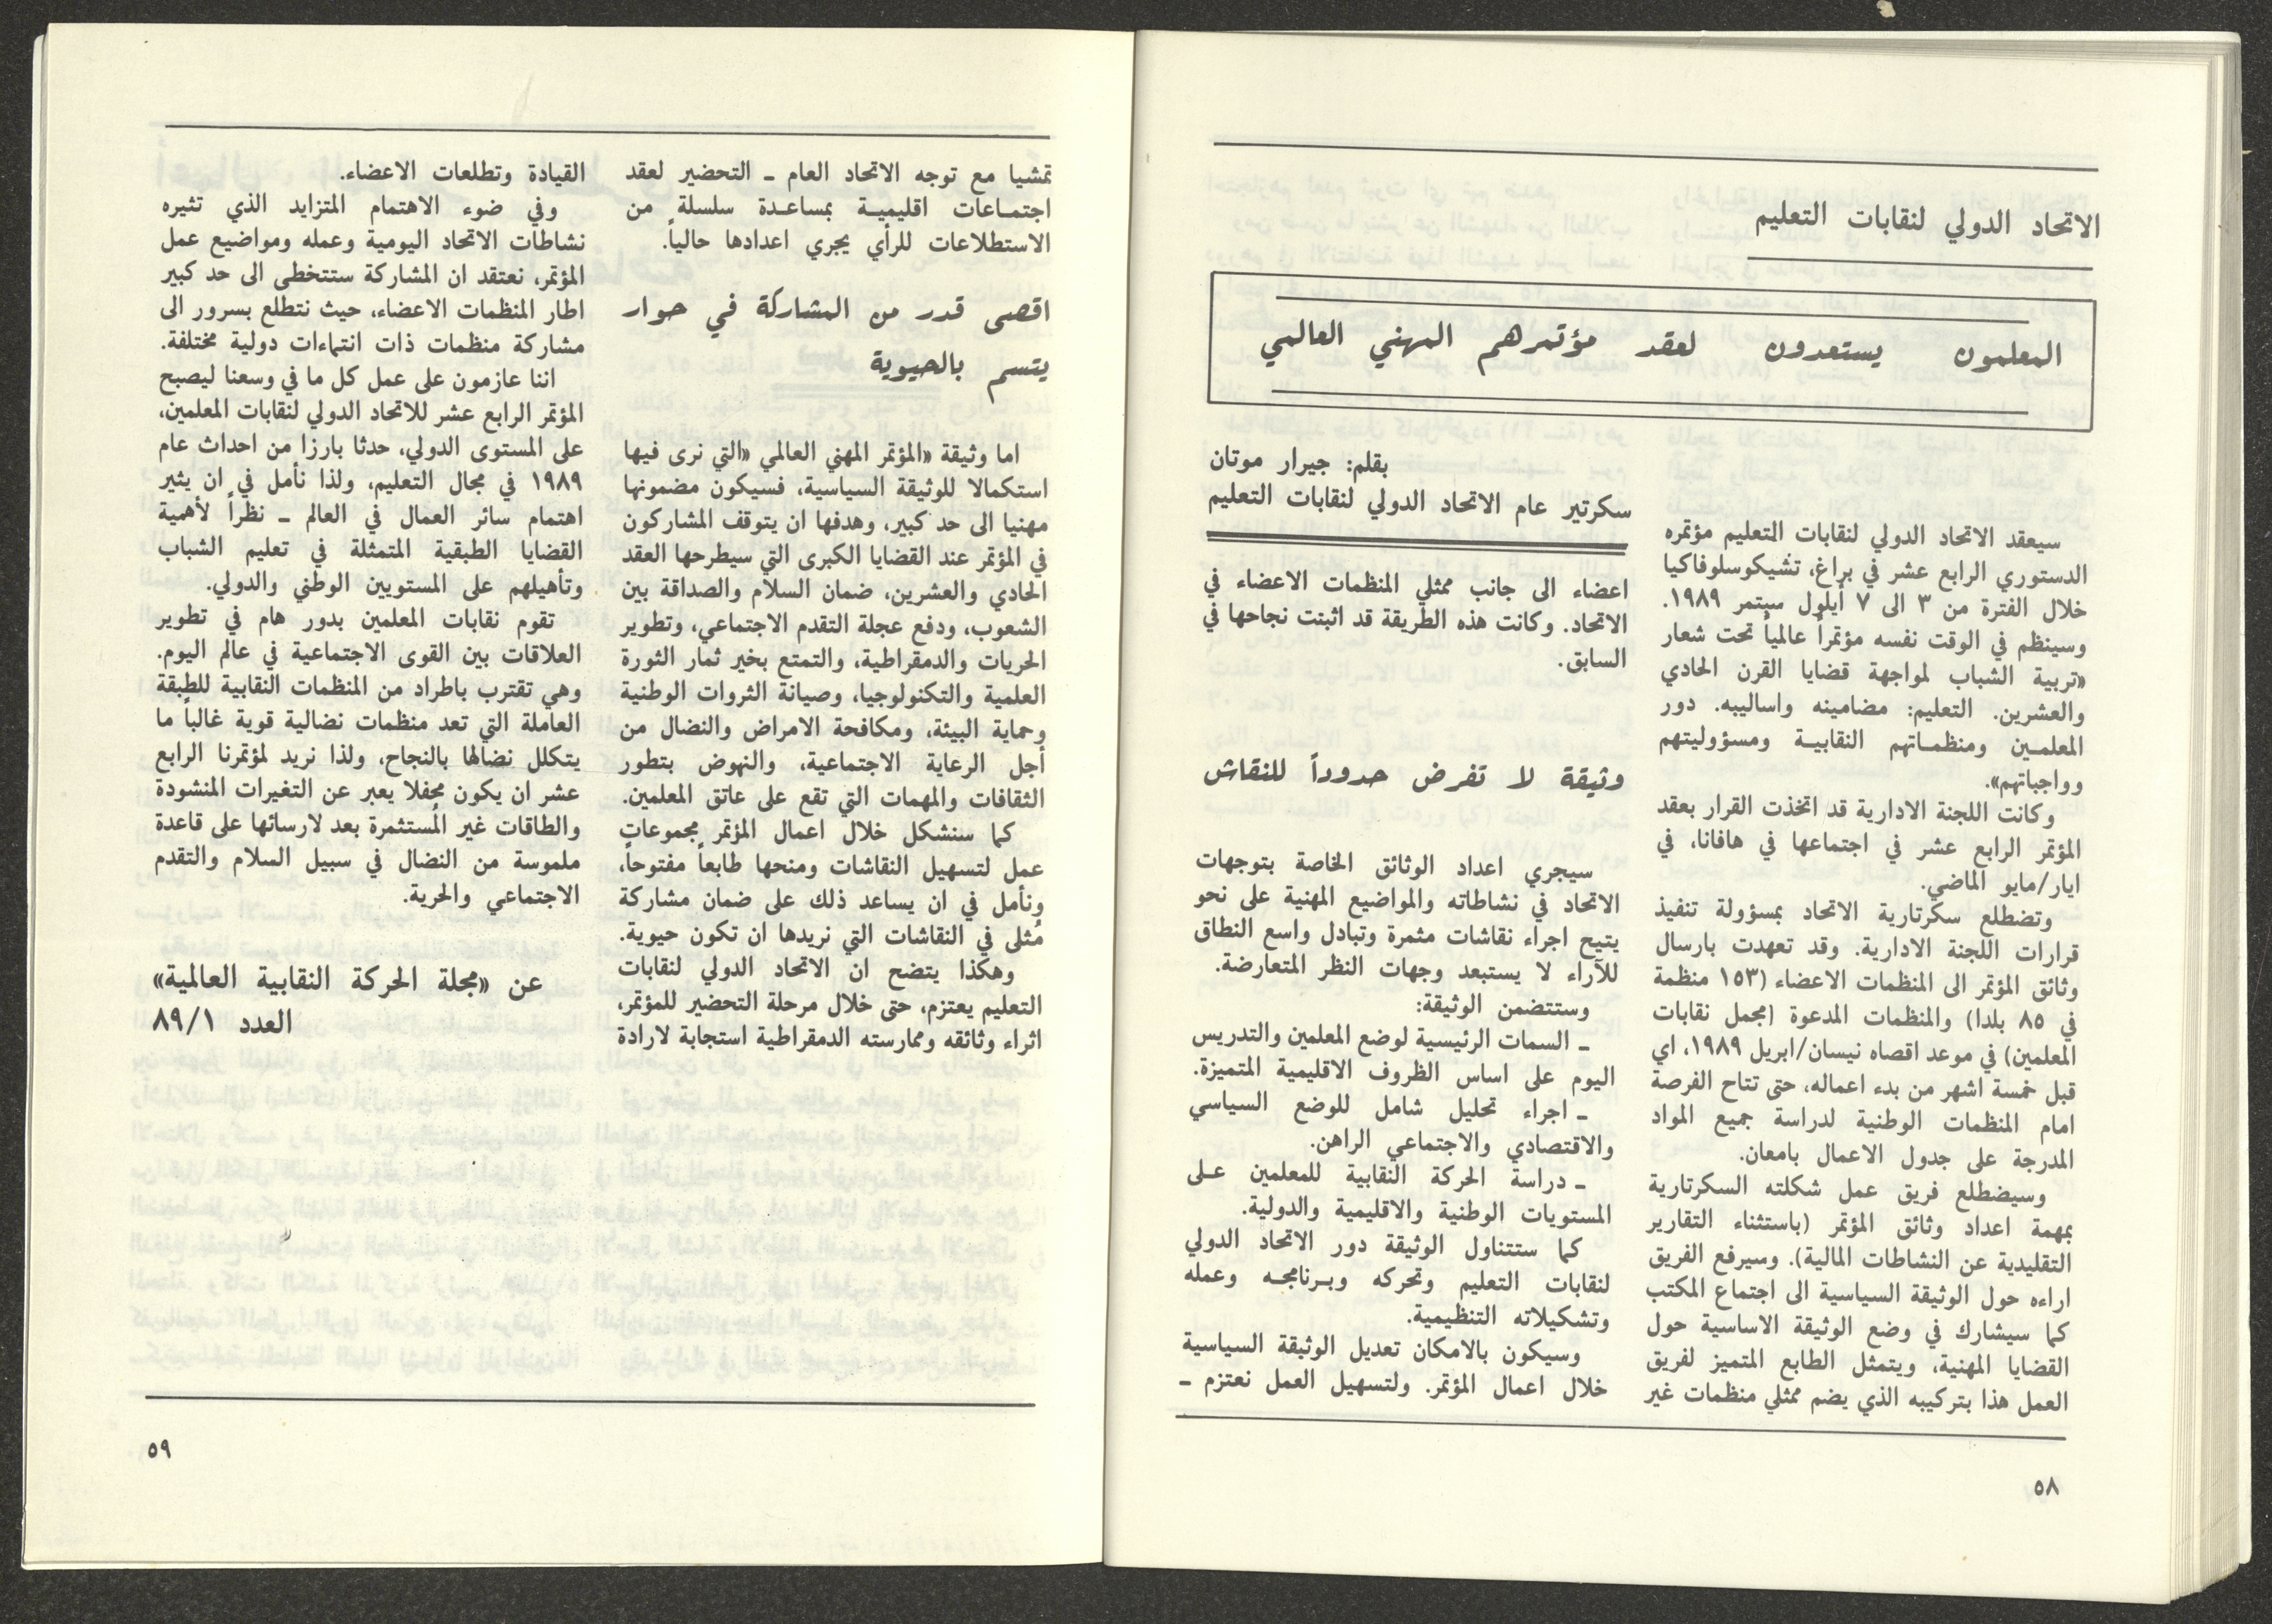 الاتحاد الدولي لنقابات التعليم
المعلمون يستعدون لعقد مؤتمرهم المهني العالمي
بقلم: جيرار موتان
سكرتير عام الاتحاد الدولي لنقابات التعليم
سيعقد الاتحاد الدولي لنقابات التعليم مؤتمره
الدستوري الرابع عشر في براغ، تشيكوسلوفاكيا
خلال الفترة من ٣ الى ٧ أيلول سبتمر ١٩٨٩.
وسينظم في الوقت نفسه مؤتمراً عالمياً تحت شعار
«تربية الشباب لمواجهة قضايا القرن الحادي
والعشرين. التعليم: مضامينه واساليبه. دور
المعلمين ومنظماتهم النقابية ومسؤوليتهم
وواجباتهم».
وكانت اللجنة الادارية قد اتخذت القرار بعقد
المؤتمر الرابع عشر في اجتماعها في هافانا، في
ايار/مايو الماضي.
وتضطلع سكرتارية الاتحاد بمسؤولة تنفيذ
قرارات اللجنة الادارية. وقد تعهدت بارسال
وثائق المؤتمر الى المنظمات الاعضاء (١٥٣ منظمة
في ٨٥ بلدا) والمنظمات المدعوة (مجمل نقابات
المعلمين) في موعد اقصاه نيسان/ابريل ١٩٨٩، اي
قبل خمسة اشهر من بدء اعماله، حتى تتاح الفرصة
امام المنظمات الوطنية لدراسة جميع المواد
المدرجة على جدول الاعمال بامعان.
وسيضطلع فريق عمل شكلته السكرتارية
بمهمة اعداد وثائق المؤتمر (باستثناء التقارير
التقليدية عن النشاطات المالية). وسيرفع الفريق
اراءه حول الوثيقة السياسية الى اجتماع المكتب
كما سيشارك في وضع الوثيقة الاساسية حول
القضايا المهنية، ويتمثل الطابع المتميز لفريق
العمل هذا بتركيبه الذي يضم ممثلي منظمات غير
اعضاء الى جانب ممثلي المنظمات الاعضاء في
الاتحاد. وكانت هذه الطريقة قد اثبتت نجاحها في
السابق.
وثيقة لا تفرض حدوداً للنقاش
سيجري اعداد الوثائق الخاصة بتوجهات
الاتحاد في نشاطاته والمواضيع المهنية على نحو
يتيح اجراء نقاشات مثمرة وتبادل واسع النطاق
للآراء لا يستبعد وجهات النظر المتعارضة.
وستتضمن الوثيقة:
ـ السمات الرئيسية لوضع المعلمين والتدريس
اليوم على اساس الظروف الاقليمية المتميزة.
ـ اجراء تحليل شامل للوضع السياسي
والاقتصادي والاجتماعي الراهن.
ـ دراسة الحركة النقابية للمعلمين على
المستويات الوطنية والاقليمية والدولية.
كما ستتناول الوثيقة دور الاتحاد الدولي
لنقابات التعليم وتحركه وبرنامجه وعمله
وتشكيلاته التنظيمية.
وسيكون بالامكان تعديل الوثيقة السياسية
خلال اعمال المؤتمر. ولتسهيل العمل نعتزم ـ
٥٨
تمشيا مع توجه الاتحاد العام ـ التحضير لعقد
اجتماعات اقليمية بمساعدة سلسلة من
الاستطلاعات للرأي يجري اعدادها حالياً.
اقصى قدر من المشاركة في حوار
يتسم بالحيوية
اما وثيقة «المؤتمر المهني العالمي «التي نرى فيها
استكمالا للوثيقة السياسية، فسيكون مضمونها
مهنيا الى حد كبير، وهدفها ان يتوقف المشاركون
في المؤتمر عند القضايا الكبرى التي سيطرحها العقد
الحادي والعشرين، ضمان السلام والصداقة بين
الشعوب، ودفع عجلة التقدم الاجتماعي، وتطوير
الحريات والدمقراطية، والتمتع بخير ثمار الثورة
العلمية والتكنولوجيا، وصيانة الثروات الوطنية
وحماية البيئة، ومكافحة الامراض والنضال من
أجل الرعاية الاجتماعية، والنهوض بتطور
الثقافات والمهمات التي تقع على عاتق المعلمين.
كما سنشكل خلال اعمال المؤتمر مجموعات
عمل لتسهيل النقاشات ومنحها طابعاً مفتوحاً،
ونأمل في ان يساعد ذلك على ضمان مشاركة
مُثلى في النقاشات التي نريدها ان تكون حيوية.
وهكذا يتضح ان الاتحاد الدولي لنقابات
التعليم يعتزم، حتى خلال مرحلة التحضير للمؤتمر،
اثراء وثائقه وممارسته الدمقراطية استجابة لارادة
القيادة وتطلعات الاعضاء.
وفي ضوء الاهتمام المتزايد الذي تثيره
نشاطات الاتحاد اليومية وعمله ومواضيع عمل
المؤتمر، نعتقد ان المشاركة ستتخطى الى حد كبير
اطار المنظمات الاعضاء، حيث نتطلع بسرور الى
مشاركة منظمات ذات انتماءات دولية مختلفة.
اننا عازمون على عمل كل ما في وسعنا ليصبح
المؤتمر الرابع عشر للاتحاد الدولي لنقابات المعلمين،
على المستوى الدولي، حدثا بارزا من احداث عام
١٩٨٩ في مجال التعليم، ولذا نأمل في ان يثير
اهتمام سائر العمال في العالم ـ نظراً لأهمية
القضايا الطبقية المتمثلة في تعليم الشباب
وتأهيلهم على المستويين الوطني والدولي.
تقوم نقابات المعلمين بدور هام في تطوير
العلاقات بين القوى الاجتماعية في عالم اليوم.
وهي تقترب باطراد من المنظمات النقابية للطبقة
العاملة التي تعد منظمات نضالية قوية غالباً ما
يتكلل نضالها بالنجاح، ولذا نريد لمؤتمرنا الرابع
عشر ان يكون محفلا يعبر عن التغيرات المنشودة
والطاقات غير المُستثمرة بعد لارسائها على قاعدة
ملموسة من النضال في سبيل السلام والتقدم
الاجتماعي والحرية.
عن «مجلة الحركة النقابية العالمية»
العدد ٨٩/١
٥٩